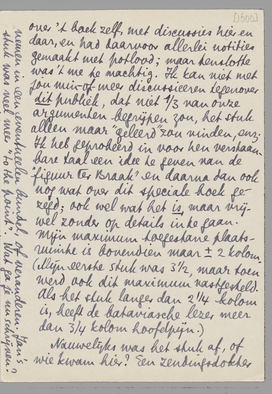 [1500]
over 't boek zelf, met discussies hier en
daar, en had daarvoor allerlei notities
gemaakt met potlood; maar tenslotte
was 't me te machtig. Ik kan niet met
jou min-of-meer discussieeren tegenover
dit publiek, dat niet 1/3 van onze
argumenten begrijpen zou, het stuk
alleen maar "geleerd" zou vinden, enz.
Ik heb geprobeerd in voor hen verstaan-
bare taal een idee te geven van de
"figuur ter Braak" en daarna dan ook
nog wat over dit speciale boek ge-
zegd; ook wel wat het is, maar vrij-
wel zonder op details in te gaan.
Mijn maximum toegestane plaats-
ruimte is bovendien maar ± 2 kolom.
(Mijn eerste stuk was 3 1/2, maar toen
werd ook dit maximum vastgesteld.
Als het stuk langer dan 2 1/4 kolom
is, heeft de bataviasche lezer meer
dan 3/4 kolom hoofdpijn.)
Nauwelijks was het stuk af, of
wie kwam hier? Een zendingsdokter
nemen in een eventueelen bundel, of veranderen. Jan's
stuk was veel meer "to the point". Wat ga je nu schrijven?